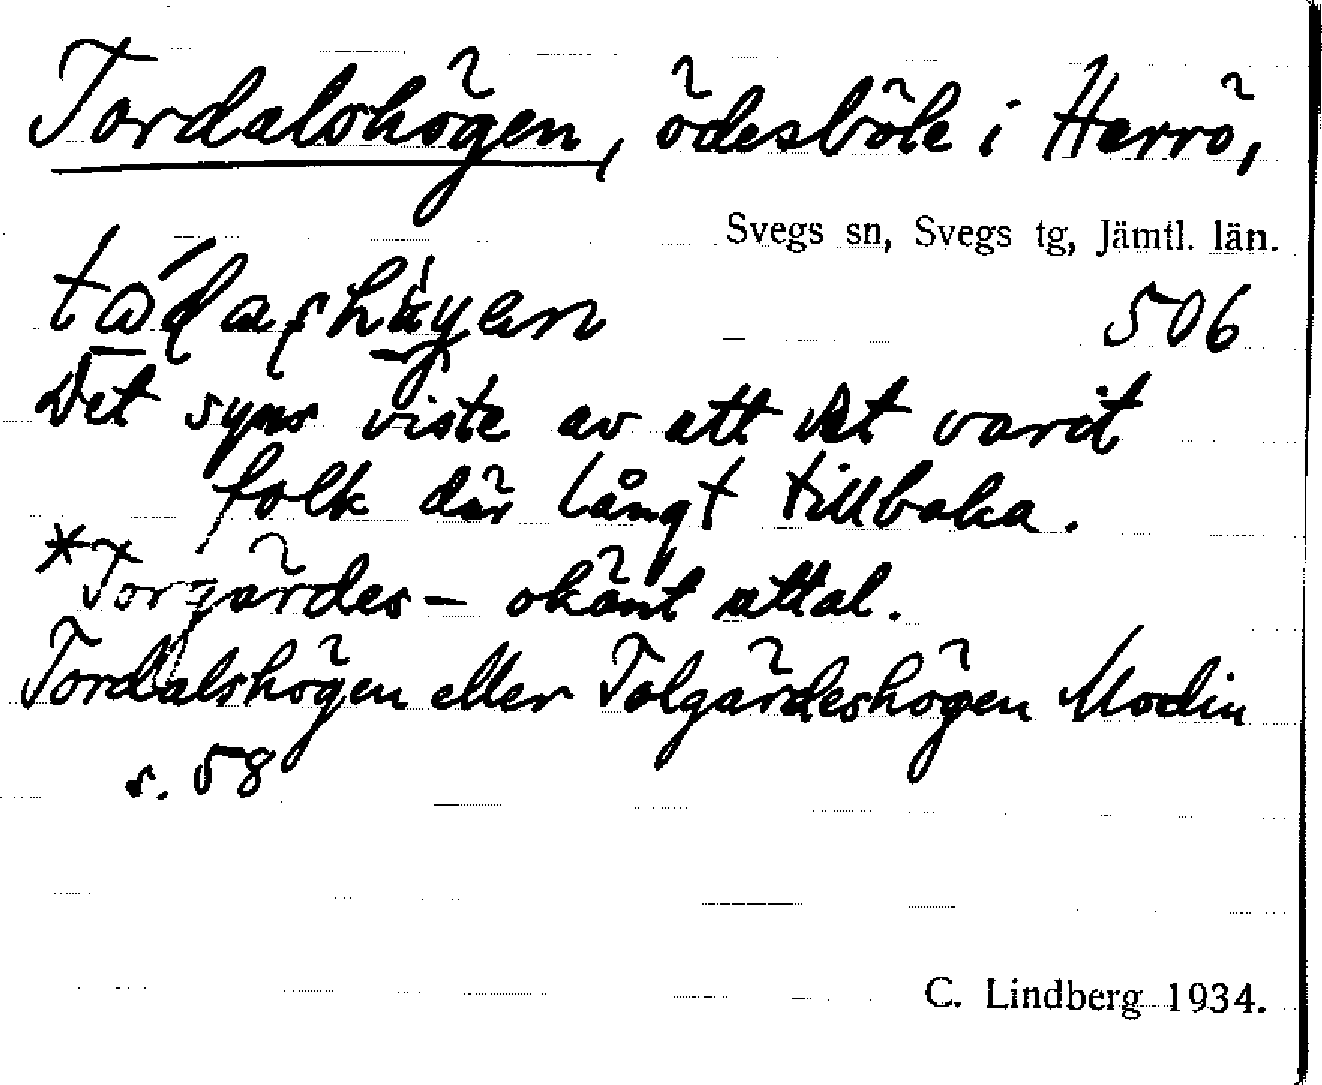 Tordalshögen, ödesböle i Herrö,
Svegs sn, Svegs tg, Jämtl. län.
506
Det syns viste av att det varit
folk där långt tillbaka.
*Torgärdes – okänt uttal.
Tordalshögen eller Tolgärdeshögen Modin
s. 58
C. Lindberg 1934.